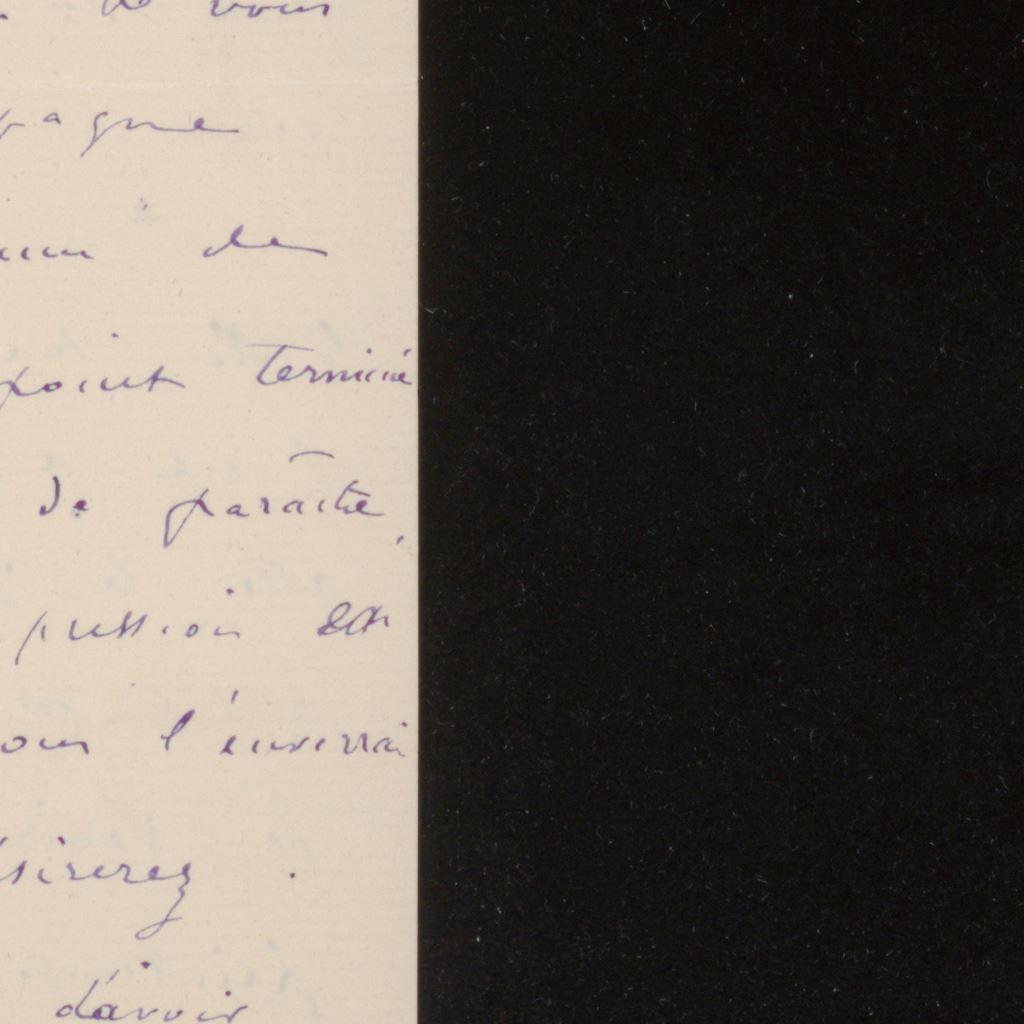 de vous
pagne
de
point terminé
de paraître,
pression est
l'enverrai
sirerez .
d'avoir